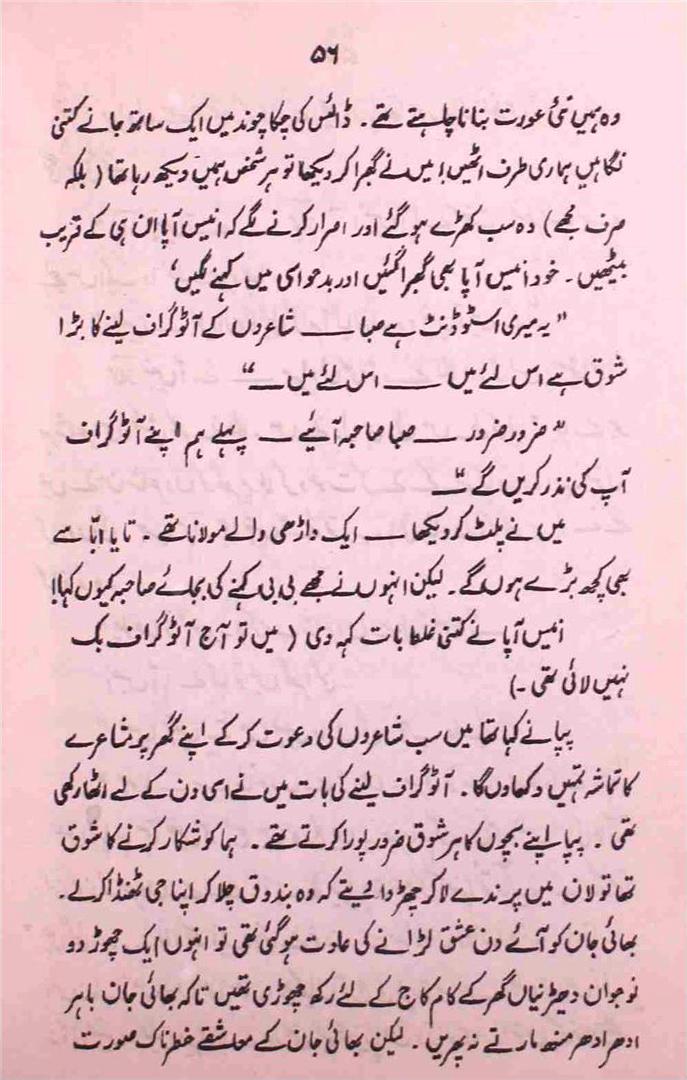 ۵۶
وہ ہمیں نئی عورت بنانا چاہتے تھے ۔ ڈائس کی چکا چوند میں ایک ساتھ جانے کتنی
نگاہیں ہماری طرف اٹھیں! میں نے گھبرا کر دیکھا تو ہر شخص ہمیں دیکھ رہا تھا ( بلکہ
صرف مجھے ) وہ سب کھڑے ہو گئے اور اصرار کرنے لگے کہ انیس آپا ان ہی کے قریب
بیٹھیں ۔ خود انیس آپا بھی گھبرا گئیں اور بدحواسی میں کہنے لگیں ‘
” یہ میری اسٹوڈنٹ ہے صبا ــــ شاعروں کے آٹوگراف لینے کا بڑا
شوق ہے اس لئے میں ــــ اس لئے میں ــ “
” ضرور ضرور ــــ صبا صاحبہ آئیے ــ پہلے ہم اپنے آٹو گراف
آپ کی نذر کریں گے “ ــ
میں نے پلٹ کر دیکھا ــــ ایک داڑھی والے مولانا تھے ۔ تایا ابّا سے
بھی کچھ بڑے ہوں گے ۔ لیکن انہوں نے مجھے بی بی کہنے کی بجائے صاحبہ کیوں کہا!
انیس آپا نے کتنی غلط بات کہہ دی ( میں تو آج آٹو گراف بک
نہیں لائی تھی ۔)
پپا نے کہا تھا میں سب شاعروں کی دعوت کر کے اپنے گھر پر مشاعرے
کا تماشہ تمہیں دکھاوں گا ۔ آٹو گراف لینے کی بات میں نے اسی دن کے لے اٹھا رکھی
تھی ۔ پپا اپنے بچوں کا ہر شوق ضرور پورا کرتے تھے ۔ ہما کو شکار کرنے کا شوق
تھا تو لان میں پرندے لا کر چھڑوا دیتے کہ وہ بندوق چلا کر اپنا جی ٹھنڈا کر لے ۔
بھائی جان کو آئے دن عشق لڑانے کی عادت ہو گئی تھی تو انہوں ایک چھوڑ دو
نوجوان دھیڑنیاں گھر کے کام کاج کے لئے رکھ چھوڑی تھیں تاکہ بھائی جان باہر
ادھر ادھر منھ مارتے نہ پھریں ۔ لیکن بھائی جان کے معاشقے خطرناک صورت